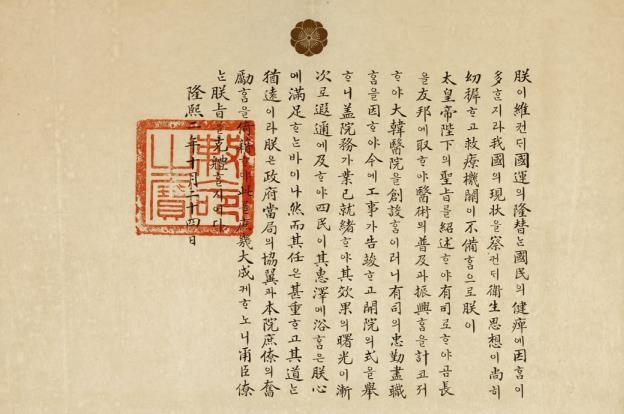 朕이維컨ᄃᆡ國運의隆替ᄂᆞᆫ國民의健瘁에因ᄒᆞᆷ이
多ᄒᆞᆫ지라我國의現狀을察컨ᄃᆡ衛生思想이尙히
幼穉ᄒᆞ고救療機關이不備ᄒᆞᆷ으로朕이
太皇帝陛下의聖旨를紹述ᄒᆞ야有司로ᄒᆞ야곰長
을友邦에取ᄒᆞ야醫術의普及과振興ᄒᆞᆷ을計코져
ᄒᆞ야大韓醫院을創設ᄒᆞᆷ이러니有司의忠勤盡職
ᄒᆞᆷ을因ᄒᆞ야今에工事가告竣ᄒᆞ고開院의式을擧
ᄒᆞ니盖院務가業已就緒ᄒᆞ야其效果의曙光이漸
次로遐邇에及ᄒᆞ야四民이其惠澤에浴ᄒᆞᆷ은朕心
에滿足ᄒᆞᄂᆞᆫ바이나然而其任은甚重ᄒᆞ고其道ᄂᆞᆫ
猶遠이라朕은政府當局의協翼과本院庶僚의奮
勵ᄒᆞᆷ을倚賴ᄒᆞ야此를庶幾大成케ᄒᆞ노니爾臣僚
ᄂᆞᆫ朕旨를克體ᄒᆞ지어다
隆熙二年十月二十四日
勅命之寶